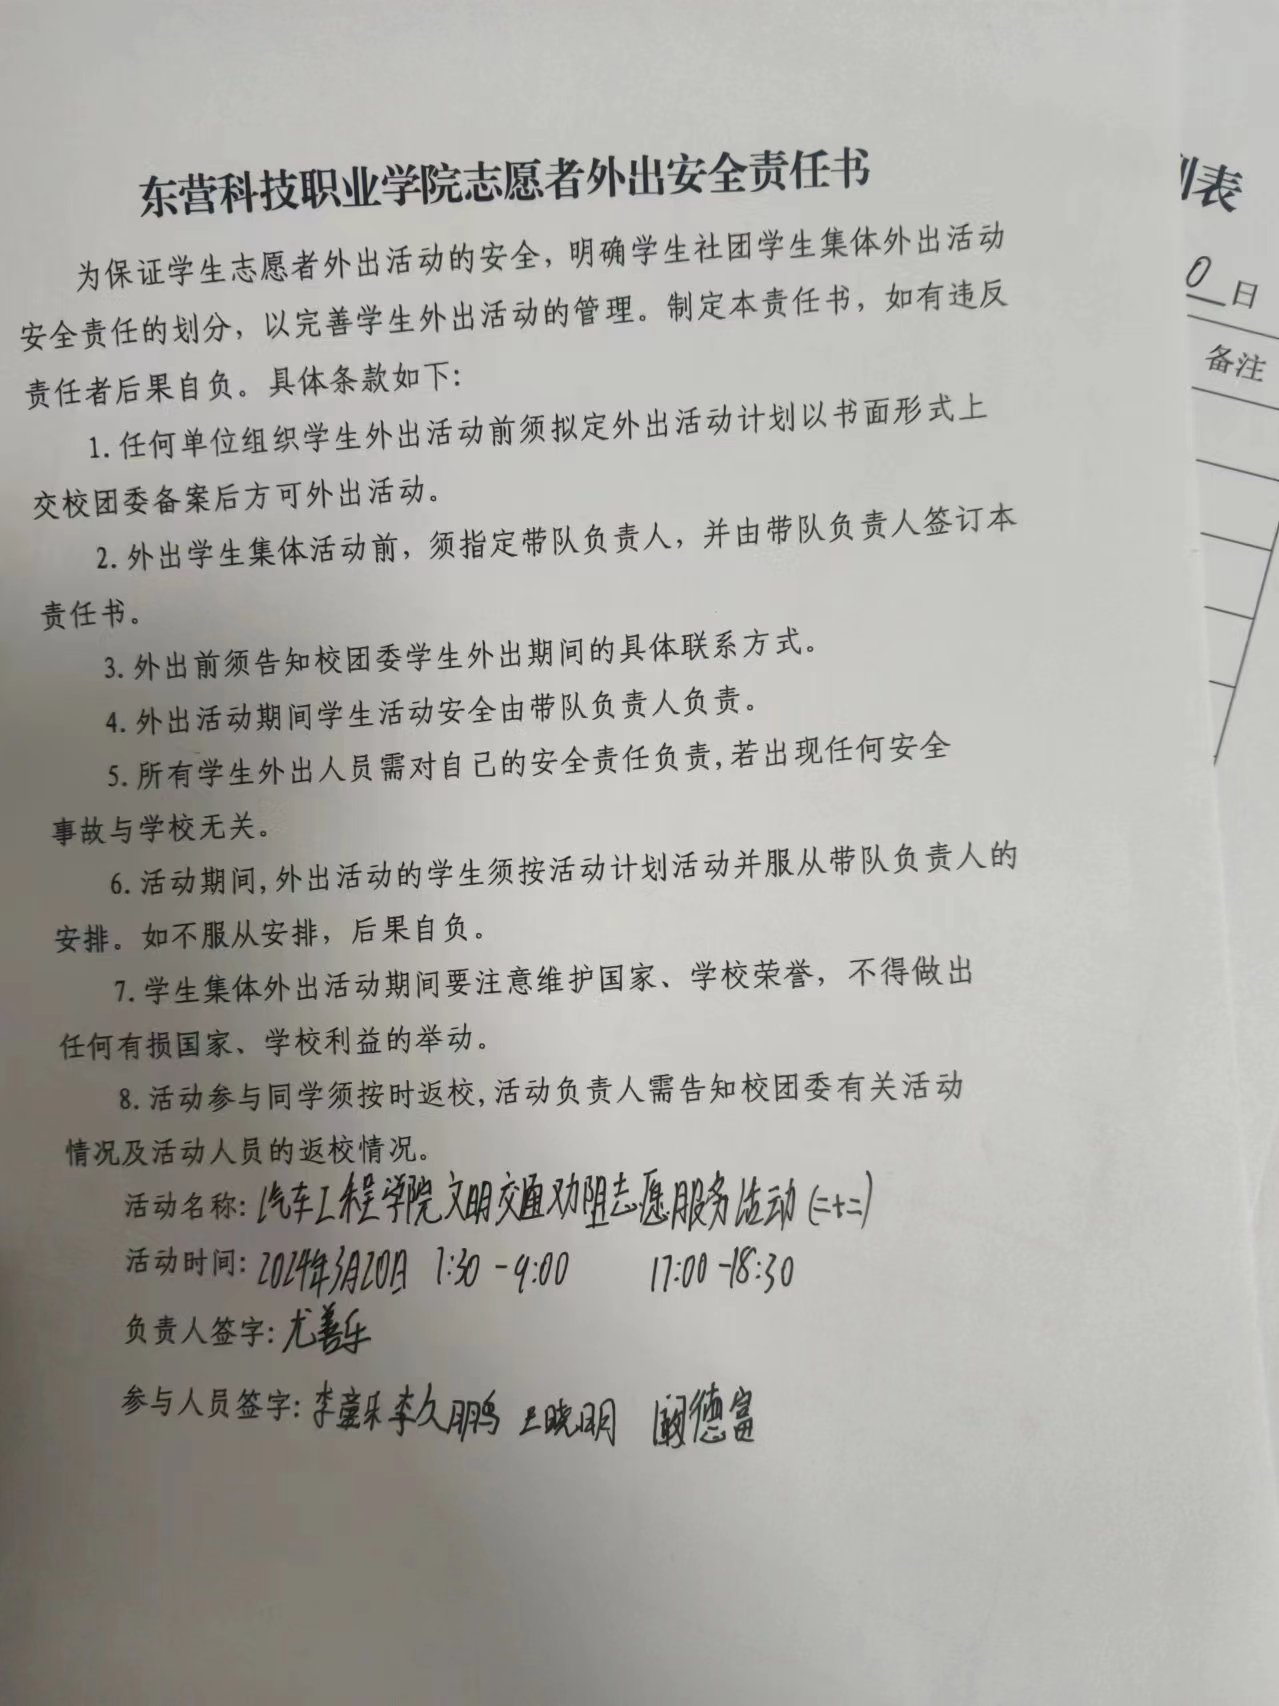 东营科技职业学院志愿者外出安全责任书
为保证学生志愿者外出活动的安全，明确学生社团学生集体外出活动
安全责任的划分，以完善学生外出活动的管理。制定本责任书，如有违反
责任者后果自负。具体条款如下：
1.任何单位组织学生外出活动前须拟定外出活动计划以书面形式上
交校团委备案后方可外出活动。
2.外出学生集体活动前，须指定带队负责人，并由带队负责人签订本
责任书。
3.外出前须告知校团委学生外出期间的具体联系方式。
4.外出活动期间学生活动安全由带队负责人负责。
5.所有学生外出人员需对自己的安全责任负责,若出现任何安全
事故与学校无关。
6.活动期间,外出活动的学生须按活动计划活动并服从带队负责人的
安排。如不服从安排，后果自负。
7.学生集体外出活动期间要注意维护国家、学校荣誉，不得做出
任何有损国家、学校利益的举动。
8.活动参与同学须按时返校,活动负责人需告知校团委有关活动
情况及活动人员的返校情况。
活动名称：汽车工程学院文明交通劝阻志愿服务活动(二十二)
活动时间：2024年3月20日 7:30-9:00 17:00-18:30
负责人签字：尤善乐
参与人员签字：李童乐 李久鹏 王晓明 阚德富
表
0日
备注